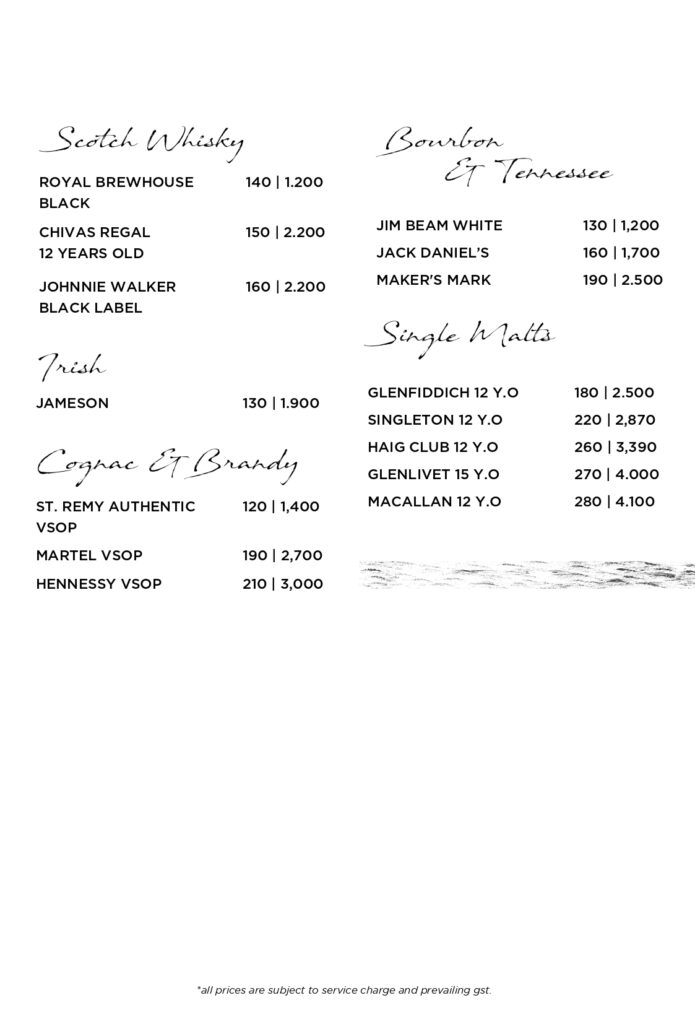 Scotch Whisky
ROYAL BREWHOUSE 140 | 1.200
BLACK
CHIVAS REGAL 150 | 2.200
12 YEARS OLD
JOHNNIE WALKER 160 | 2.200
BLACK LABEL
Irish
JAMESON 130 | 1.900
Cognac Et Brandy
ST. REMY AUTHENTIC 120 | 1,400
VSOP
MARTEL VSOP 190 | 2,700
HENNESSY VSOP 210 | 3,000
Bourbon
Et Tennessee
JIM BEAM WHITE 130 | 1,200
JACK DANIEL'S 160 | 1,700
MAKER'S MARK 190 | 2.500
Single Malts
GLENFIDDICH 12 Y.O 180 | 2.500
SINGLETON 12 Y.O 220 | 2,870
HAIG CLUB 12 Y.O 260 | 3,390
GLENLIVET 15 Y.O 270 | 4.000
MACALLAN 12 Y.O 280 | 4.100
*all prices are subject to service charge and prevailing gst.